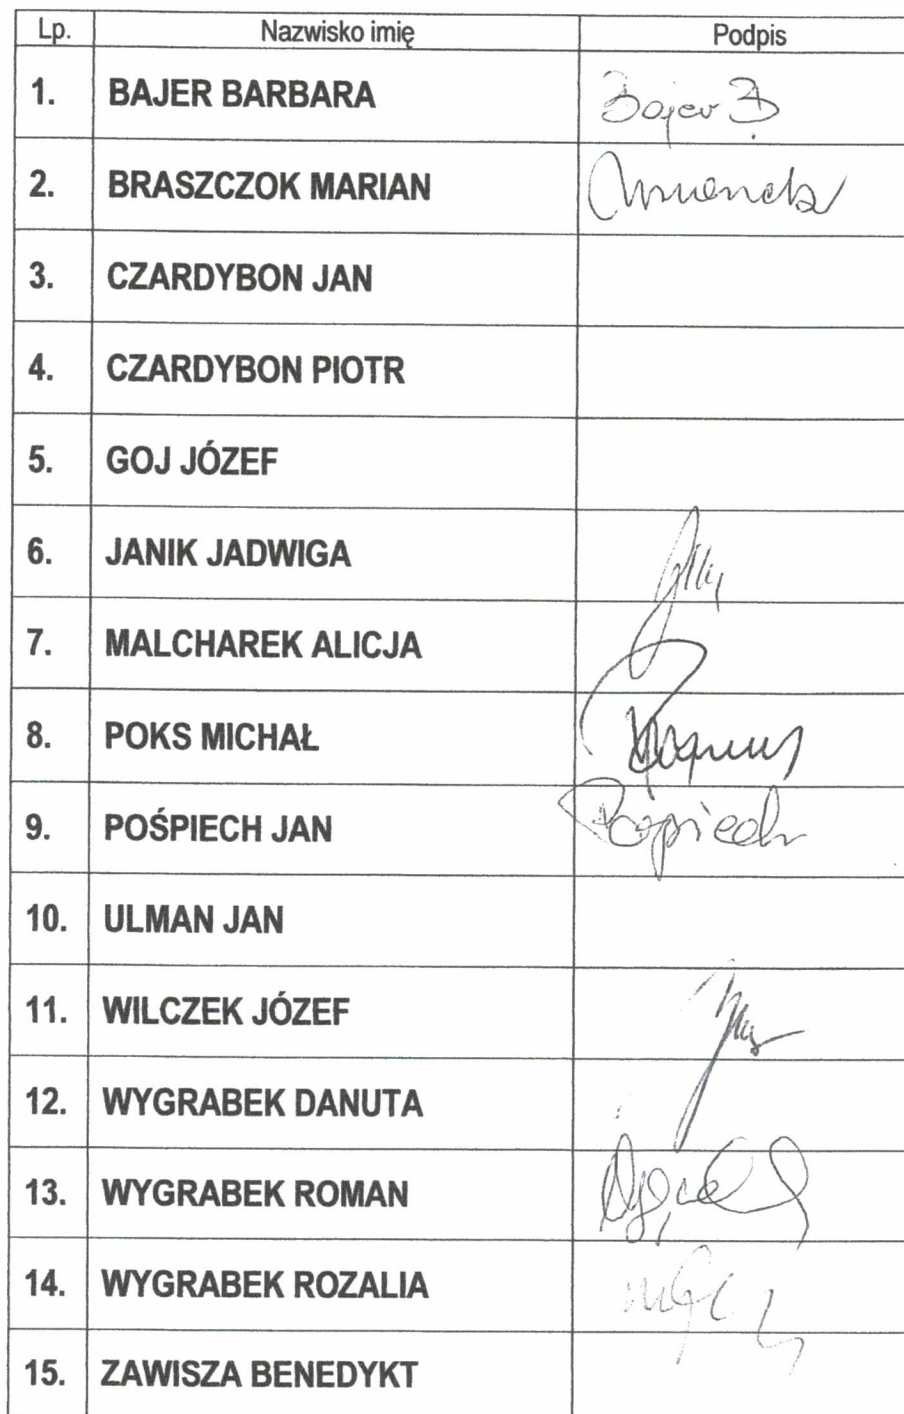 Lp. Nazwisko imię Podpis
1. BAJER BARBARA Bajer B
2. BRASZCZOK MARIAN
3. CZARDYBON JAN
4. CZARDYBON PIOTR
5. GOJ JÓZEF
6. JANIK JADWIGA
7. MALCHAREK ALICJA
8. POKS MICHAŁ
9. POŚPIECH JAN Pośpiech
10. ULMAN JAN
11. WILCZEK JÓZEF
12. WYGRABEK DANUTA
13. WYGRABEK ROMAN
14. WYGRABEK ROZALIA
15. ZAWISZA BENEDYKT